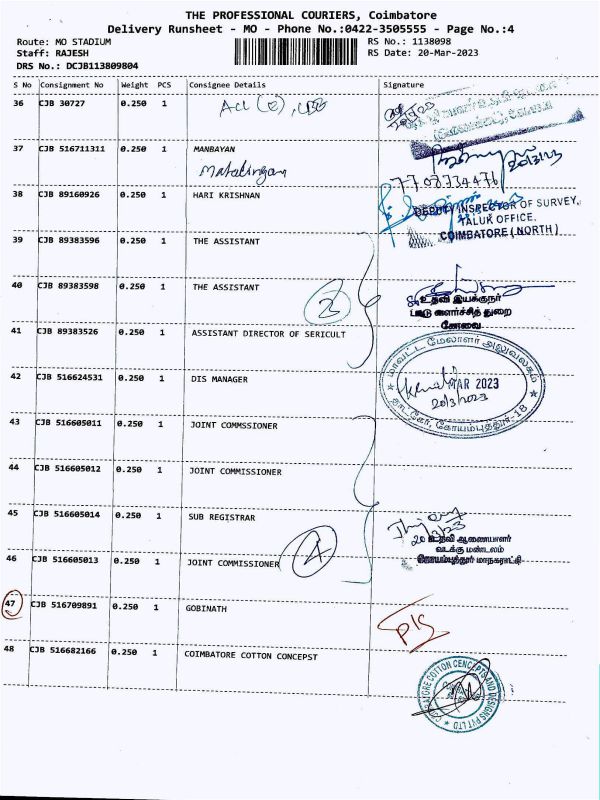 THE PROFESSIONAL COURIERS, Coimbatore
Delivery Runsheet - MO - Phone No.:0422-3505555 - Page No.:4
Route: MO STADIUM RS No.: 1138098
Staff: RAJESH RS Date: 20-Mar-2023
DRS No.: DCJB113809804
S No Consignment No Weight PCS Consignee Details Signature
36 CJB 30727 0.250 1
37 CJB 516711311 0.250 1 MANBAYAN
20/3/23
7708334476
38 CJB 89160926 0.250 1 HARI KRISHNAN
DEPUTY INSPECTOR OF SURVEY,
TALUK OFFICE,
COIMBATORE (NORTH)
39 CJB 89383596 0.250 1 THE ASSISTANT
40 CJB 89383598 0.250 1 THE ASSISTANT
3
உதவி இயக்குநர்
பட்டு வளர்ச்சித் துறை
கோவை
41 CJB 89383526 0.250 1 ASSISTANT DIRECTOR OF SERICULT
42 CJB 516624531 0.250 1 DIS MANAGER
மாவட்ட மேலாளர் அலுவலகம்
MAR 2023
20/3/2023
கோயம்புத்தூர்-18
43 CJB 516605011 0.250 1 JOINT COMMSSIONER
44 CJB 516605012 0.250 1 JOINT COMMSSIONER
45 CJB 516605014 0.250 1 SUB REGISTRAR
4
உதவி ஆணையாளர்
வடக்கு மண்டலம்
கோயம்புத்தூர் மாநகராட்சி
46 CJB 516605013 0.250 1 JOINT COMMSSIONER
47 CJB 516709891 0.250 1 GOBINATH
P/S
48 CJB 516682166 0.250 1 COIMBATORE COTTON CONCEPST
COIMBATORE COTTON CENCEPTS AND DESIGNS PVT LTD